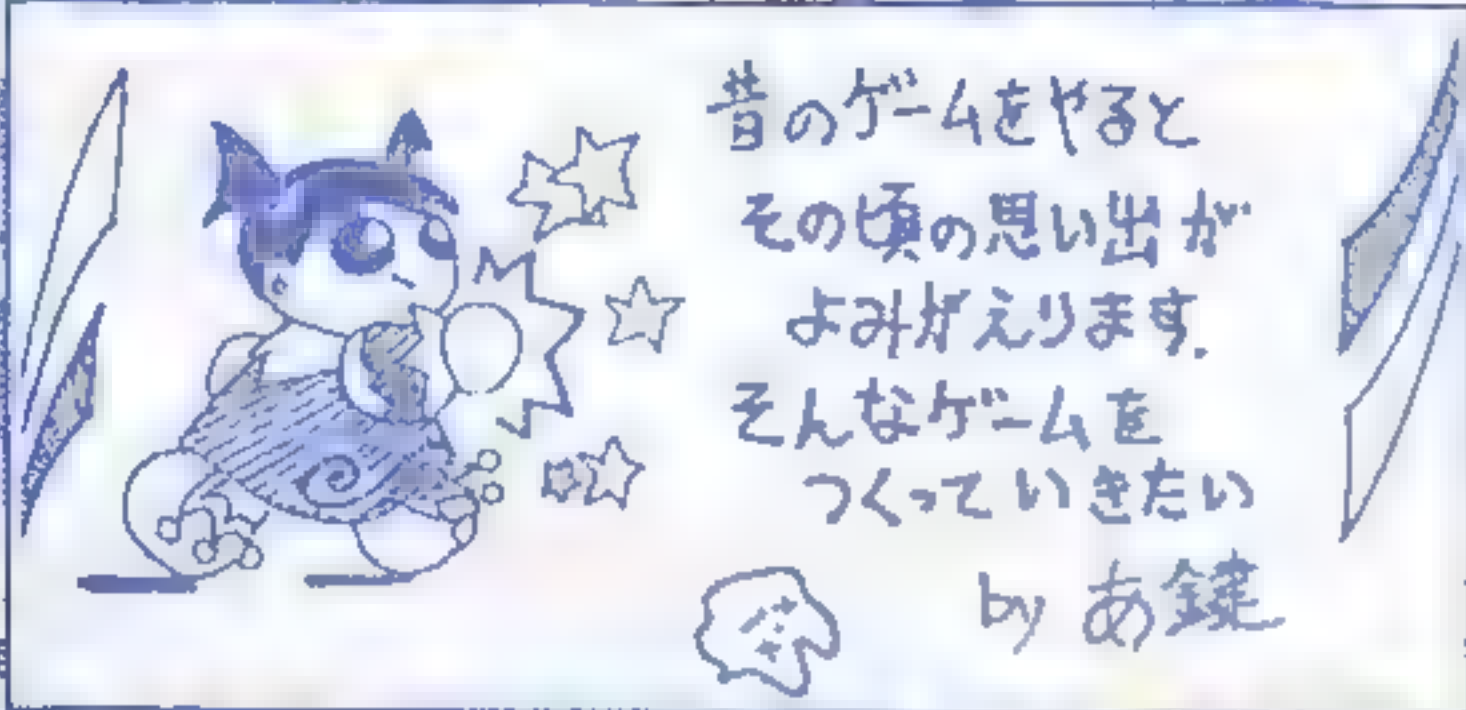 昔のゲームをやると
その頃の思い出が
よみがえります.
そんなゲームを
つくっていきたい
by あ鍵